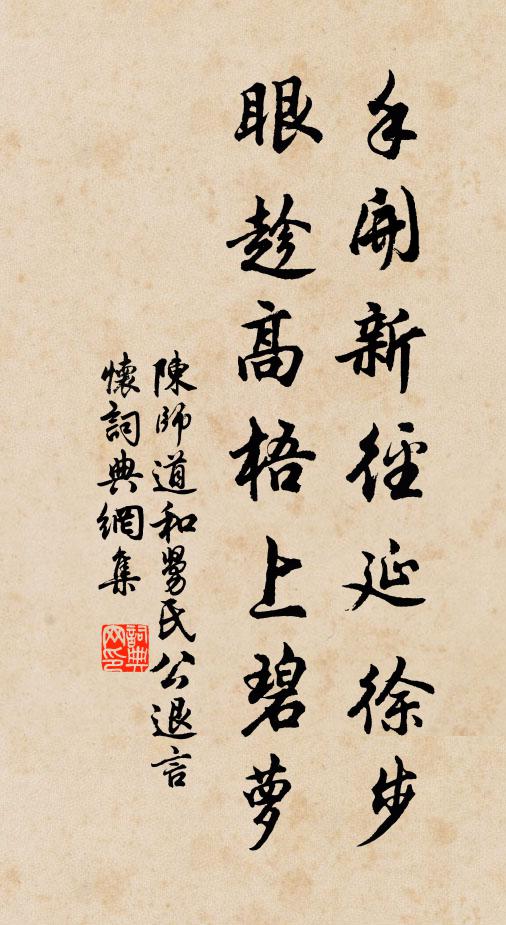 手開新徑延徐步
眼趁高梧上碧夢
陳師道和勞氏公退言
懷詞典網集
詞典
网印